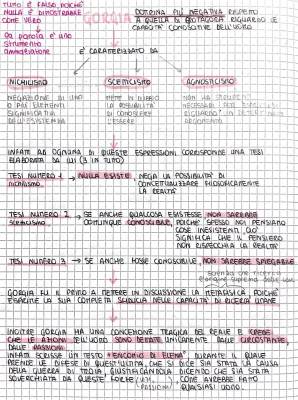 TUTTO È FALSO, POICHÉ
NULLA È DIMOSTRABILE
COME VERO
la parola è uno
strumento
ammaliatore
GORGIA
DOTTRINA PIÙ NEGATIVA RISPETTO
A QUELLA DI PROTAGORA RIGUARDO LE
CAPACITÀ CONOSCITIVE DELL'UOMO
È CARATTERIZZATO DA
NICHILISMO SCETTICISMO AGNOSTICISMO
NEGAZIONE DI UNO
O PIÙ ELEMENTI
SIGNIFICATIVI
DALL'ESISTENZA
METTE IN DUBBIO
LA POSSIBILITÀ
DI CONOSCERE
L'ESSERE
NON HA
NECESSARI PER
RIGUARDO
ARGOMENTO
INFATTI AD OGNUNA DI QUESTE ESPRESSIONI CORRISPONDE UNA TESI
ELABORATA DA LUI (3 IN TUTTO)
TESI NUMERO 1 NULLA ESISTE, NEGA LA POSSIBILITÀ DI
nichilismo CONCETTUALIZZARE FILOSOFICAMENTE
LA REALTÀ
TESI NUMERO 2 SE ANCHE QUALCOSA ESISTESSE NON SAREBBE
scetticismo COMUNQUE CONOSCIBILE, POICHÉ SPESSO NOI PENSIAMO
COSE INESISTENTI, CIÒ
SIGNIFICA CHE IL PENSIERO
NON RISPECCHIA LA REALTÀ
TESI NUMERO 3 SE ANCHE FOSSE CONOSCIBILE, NON SAREBBE SPIEGABILE
scienza che ricerca
GORGIA FU IL PRIMO A METTERE IN DISCUSSIONE LA METAFISICA POICHÉ
ESAURISCE LA SUA COMPLETA SFIDUCIA NELLE CAPACITÀ DI RICERCA UMANE
INOLTRE GORGIA HA UNA CONCEZIONE TRAGICA DEL REALE E CREDE
CHE LE AZIONI DELL'UOMO SONO DETTATE UNICAMENTE DALLE CIRCOSTANZE,
DALLE PASSIONI
INFATTI SCRISSE UN TESTO "ENCOMIO DI ELENA" DURANTE IL QUALE
PRENDE LE DIFESE DI QUEST'ULTIMA, CHE SI DICE SIA STATA LA CAUSA
DELLA GUERRA DI TROIA, GIUSTIFICANDOLA DICENDO CHE SIA STATA
SOVERCHIATA DA QUESTE FORZE COME AVREBBE FATTO
PASSIONI QUALSIASI UOMO